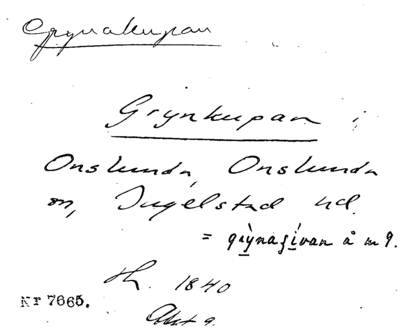 Grynakupan
Grynkupan i
Onslunda, Onslunda
sn, Ingelstad hd.
= grỳnasívan å m 9.
h. 1840
Nr 7665.
Akt 9